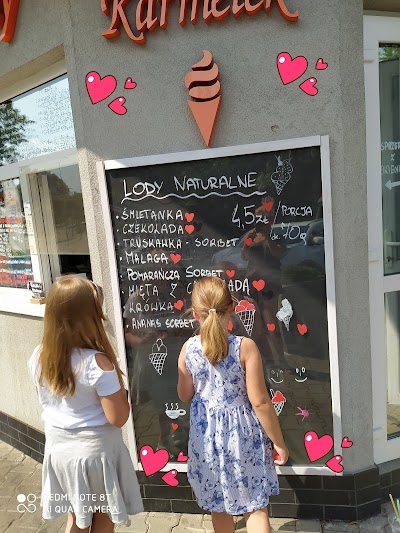 Karmelek
LODY NATURALNE
• ŚMIETANKA
• CZEKOLADA
• TRUSKAWKA - SORBET
• MALAGA
• POMARAŃCZA SORBET
• MIĘTA Z CZEKOLADĄ
• KRÓWKA
• ANANAS SORBET
4,5zł / PORCJA
do 70g
REDMI NOTE 8T
AI QUAD CAMERA